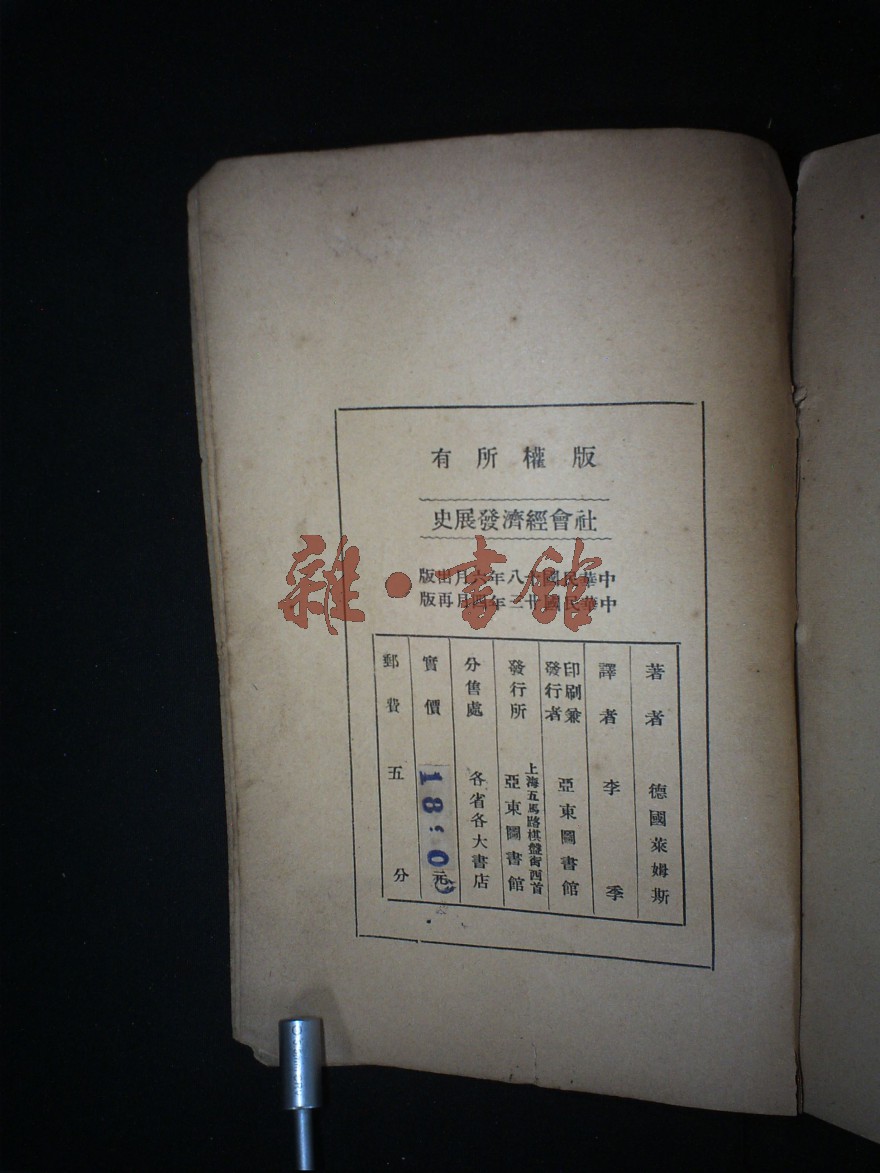 版權所有
社會經濟發展史
中華民國十八年六月出版
中華民國廿三年四月再版
著者 德國萊姆斯
譯者 李季
印刷兼發行者 亞東圖書館
發行所 上海五馬路棋盤街西首 亞東圖書館
分售處 各省各大書店
實價 18.00 元
郵費 五分
雜·書館